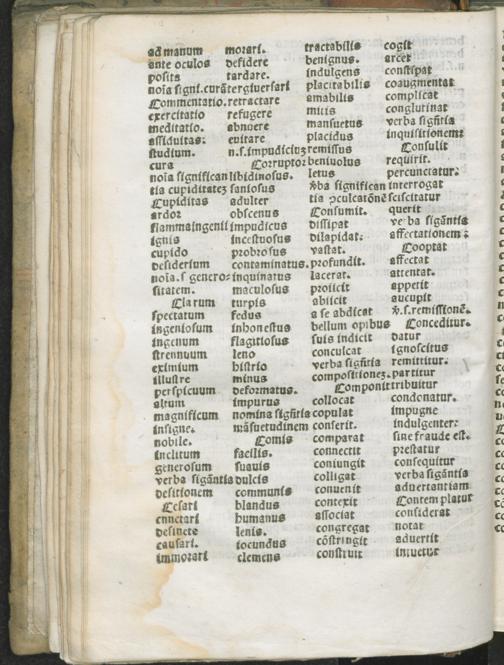 ad manum
ante oculos
posita
noīa signi.curā
Commentatio.
exercitatio
meditatio.
assiduitas:
studium.
cura
noīa significan
tia cupiditatez
Cupiditas
ardor
flamma ingenii
ignis
cupido
desiderium
noīa.s generos
sitatem.
Clarum
spectatum
ingeniosum
ingenum
strennuum
eximium
illustre
perspicuum
altum
magnificum
insigne.
nobile.
inclitum
generosum
verba sigāntia
desitionem
Cesari
cunctari
desinere
causari.
immorari
morari.
desidere
tardare.
tergiversari
retractare
refugere
abnuere
evitare
n.s.impudiciz
Corruptor
libidinosus.
saniosus
adulter
obscenus
impudicus
incestuosus
probrosus
contaminatus.
inquinatus
maculosus
turpis
fedus
inhonestus
flagitiosus
leno
histrio
minus
deformatus.
impurus
nomina signītia
māsuetudinem
Comis
facilis.
suavis
dulcis
communis
blandus
humanus
lenis.
iocundus
clemens
tractabilis
benignus.
indulgens
placitabilis
amabilis
mitis
mansuetus
placidus
remissus
benivolus
letus
v̄ba significan
tia ꝓculcatōnē
Consumit.
dissipat
dilapidat:
vastat.
profundit.
lacerat.
proiicit
abiicit
a se abdicat
bellum opibus
suis indicit
conculcat
verba signītia
compositionez.
Componit
collocat
copulat
conserit.
comparat
connectit
coniungit
colligat
convenit
contexit
associat
congregat
cōstringit
construit
cogit
arcet
constipat
coaugmentat
complicat
conglutinat
verba signītia
inquisitionemz
Consulit
requirit.
percunctatur:
interrogat
sciscitatur
querit
verba sigāntia
affectationem:
Cooptat
affectat
attentat.
appetit
aucupit
v̄.s.remissionē.
Conceditur.
datur
ignoscitus
remittitur.
partitur
tribuitur
condonatur.
impugne
indulgenter:
sine fraude est.
prestatur
consequitur
verba sigāntia
advertantiam
Contemplatur
considerat
notat
advertit
intuetur